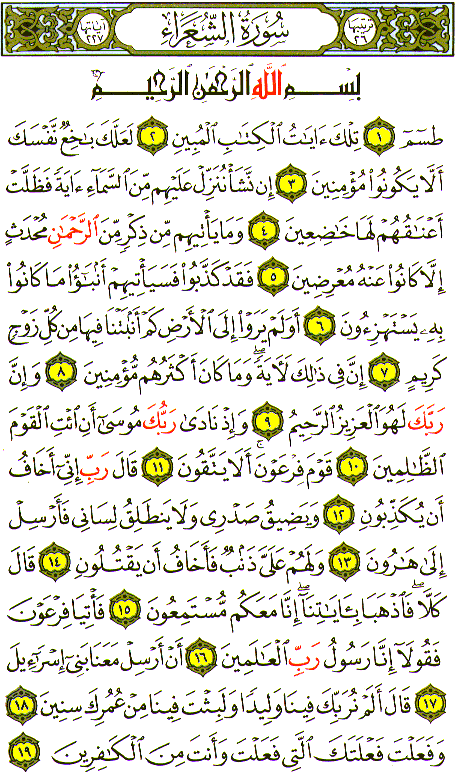 ترتيبها ٢٦ سُورَةُ الشُّعَرَاءِ آياتها ٢٢٧
بِسْمِ اللَّهِ الرَّحْمَٰنِ الرَّحِيمِ
طسٓمٓ ١ تِلْكَ ءَايَٰتُ الْكِتَٰبِ الْمُبِينِ ٢ لَعَلَّكَ بَٰخِعٌ نَّفْسَكَ
أَلَّا يَكُونُوا۟ مُؤْمِنِينَ ٣ إِن نَّشَأْ نُنَزِّلْ عَلَيْهِم مِّنَ السَّمَآءِ ءَايَةً فَظَلَّتْ
أَعْنَٰقُهُمْ لَهَا خَٰضِعِينَ ٤ وَمَا يَأْتِيهِم مِّن ذِكْرٍ مِّنَ الرَّحْمَٰنِ مُحْدَثٍ
إِلَّا كَانُوا۟ عَنْهُ مُعْرِضِينَ ٥ فَقَدْ كَذَّبُوا۟ فَسَيَأْتِيهِمْ أَنۢبَٰٓؤُا۟ مَا كَانُوا۟
بِهِۦ يَسْتَهْزِءُونَ ٦ أَوَلَمْ يَرَوْا۟ إِلَى الْأَرْضِ كَمْ أَنۢبَتْنَا فِيهَا مِن كُلِّ زَوْجٍ
كَرِيمٍ ٧ إِنَّ فِى ذَٰلِكَ لَءَايَةً ۖ وَمَا كَانَ أَكْثَرُهُم مُّؤْمِنِينَ ٨ وَإِنَّ
رَبَّكَ لَهُوَ الْعَزِيزُ الرَّحِيمُ ٩ وَإِذْ نَادَىٰ رَبُّكَ مُوسَىٰٓ أَنِ ائْتِ الْقَوْمَ
الظَّٰلِمِينَ ١٠ قَوْمَ فِرْعَوْنَ ۚ أَلَا يَتَّقُونَ ١١ قَالَ رَبِّ إِنِّىٓ أَخَافُ
أَن يُكَذِّبُونِ ١٢ وَيَضِيقُ صَدْرِى وَلَا يَنطَلِقُ لِسَانِى فَأَرْسِلْ
إِلَىٰ هَٰرُونَ ١٣ وَلَهُمْ عَلَىَّ ذَنۢبٌ فَأَخَافُ أَن يَقْتُلُونِ ١٤ قَالَ
كَلَّا ۖ فَاذْهَبَا بِـَٔايَٰتِنَآ ۖ إِنَّا مَعَكُم مُّسْتَمِعُونَ ١٥ فَأْتِيَا فِرْعَوْنَ
فَقُولَآ إِنَّا رَسُولُ رَبِّ الْعَٰلَمِينَ ١٦ أَنْ أَرْسِلْ مَعَنَا بَنِىٓ إِسْرَٰٓءِيلَ
١٧ قَالَ أَلَمْ نُرَبِّكَ فِينَا وَلِيدًا وَلَبِثْتَ فِينَا مِنْ عُمُرِكَ سِنِينَ ١٨
وَفَعَلْتَ فَعْلَتَكَ الَّتِى فَعَلْتَ وَأَنتَ مِنَ الْكَٰفِرِينَ ١٩